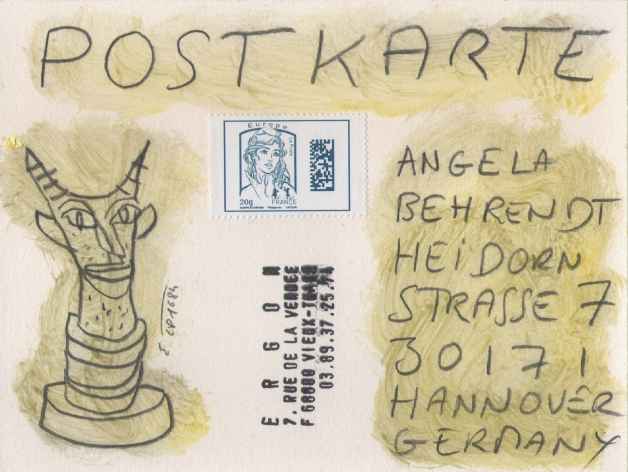 POSTKARTE
Europe
20g
FRANCE
ANGELA
BEHRENDT
HEIDORN
STRASSE 7
30171
HANNOVER
GERMANY
ERGON
7. RUE DE LA VENDEE
03.89.37.25.